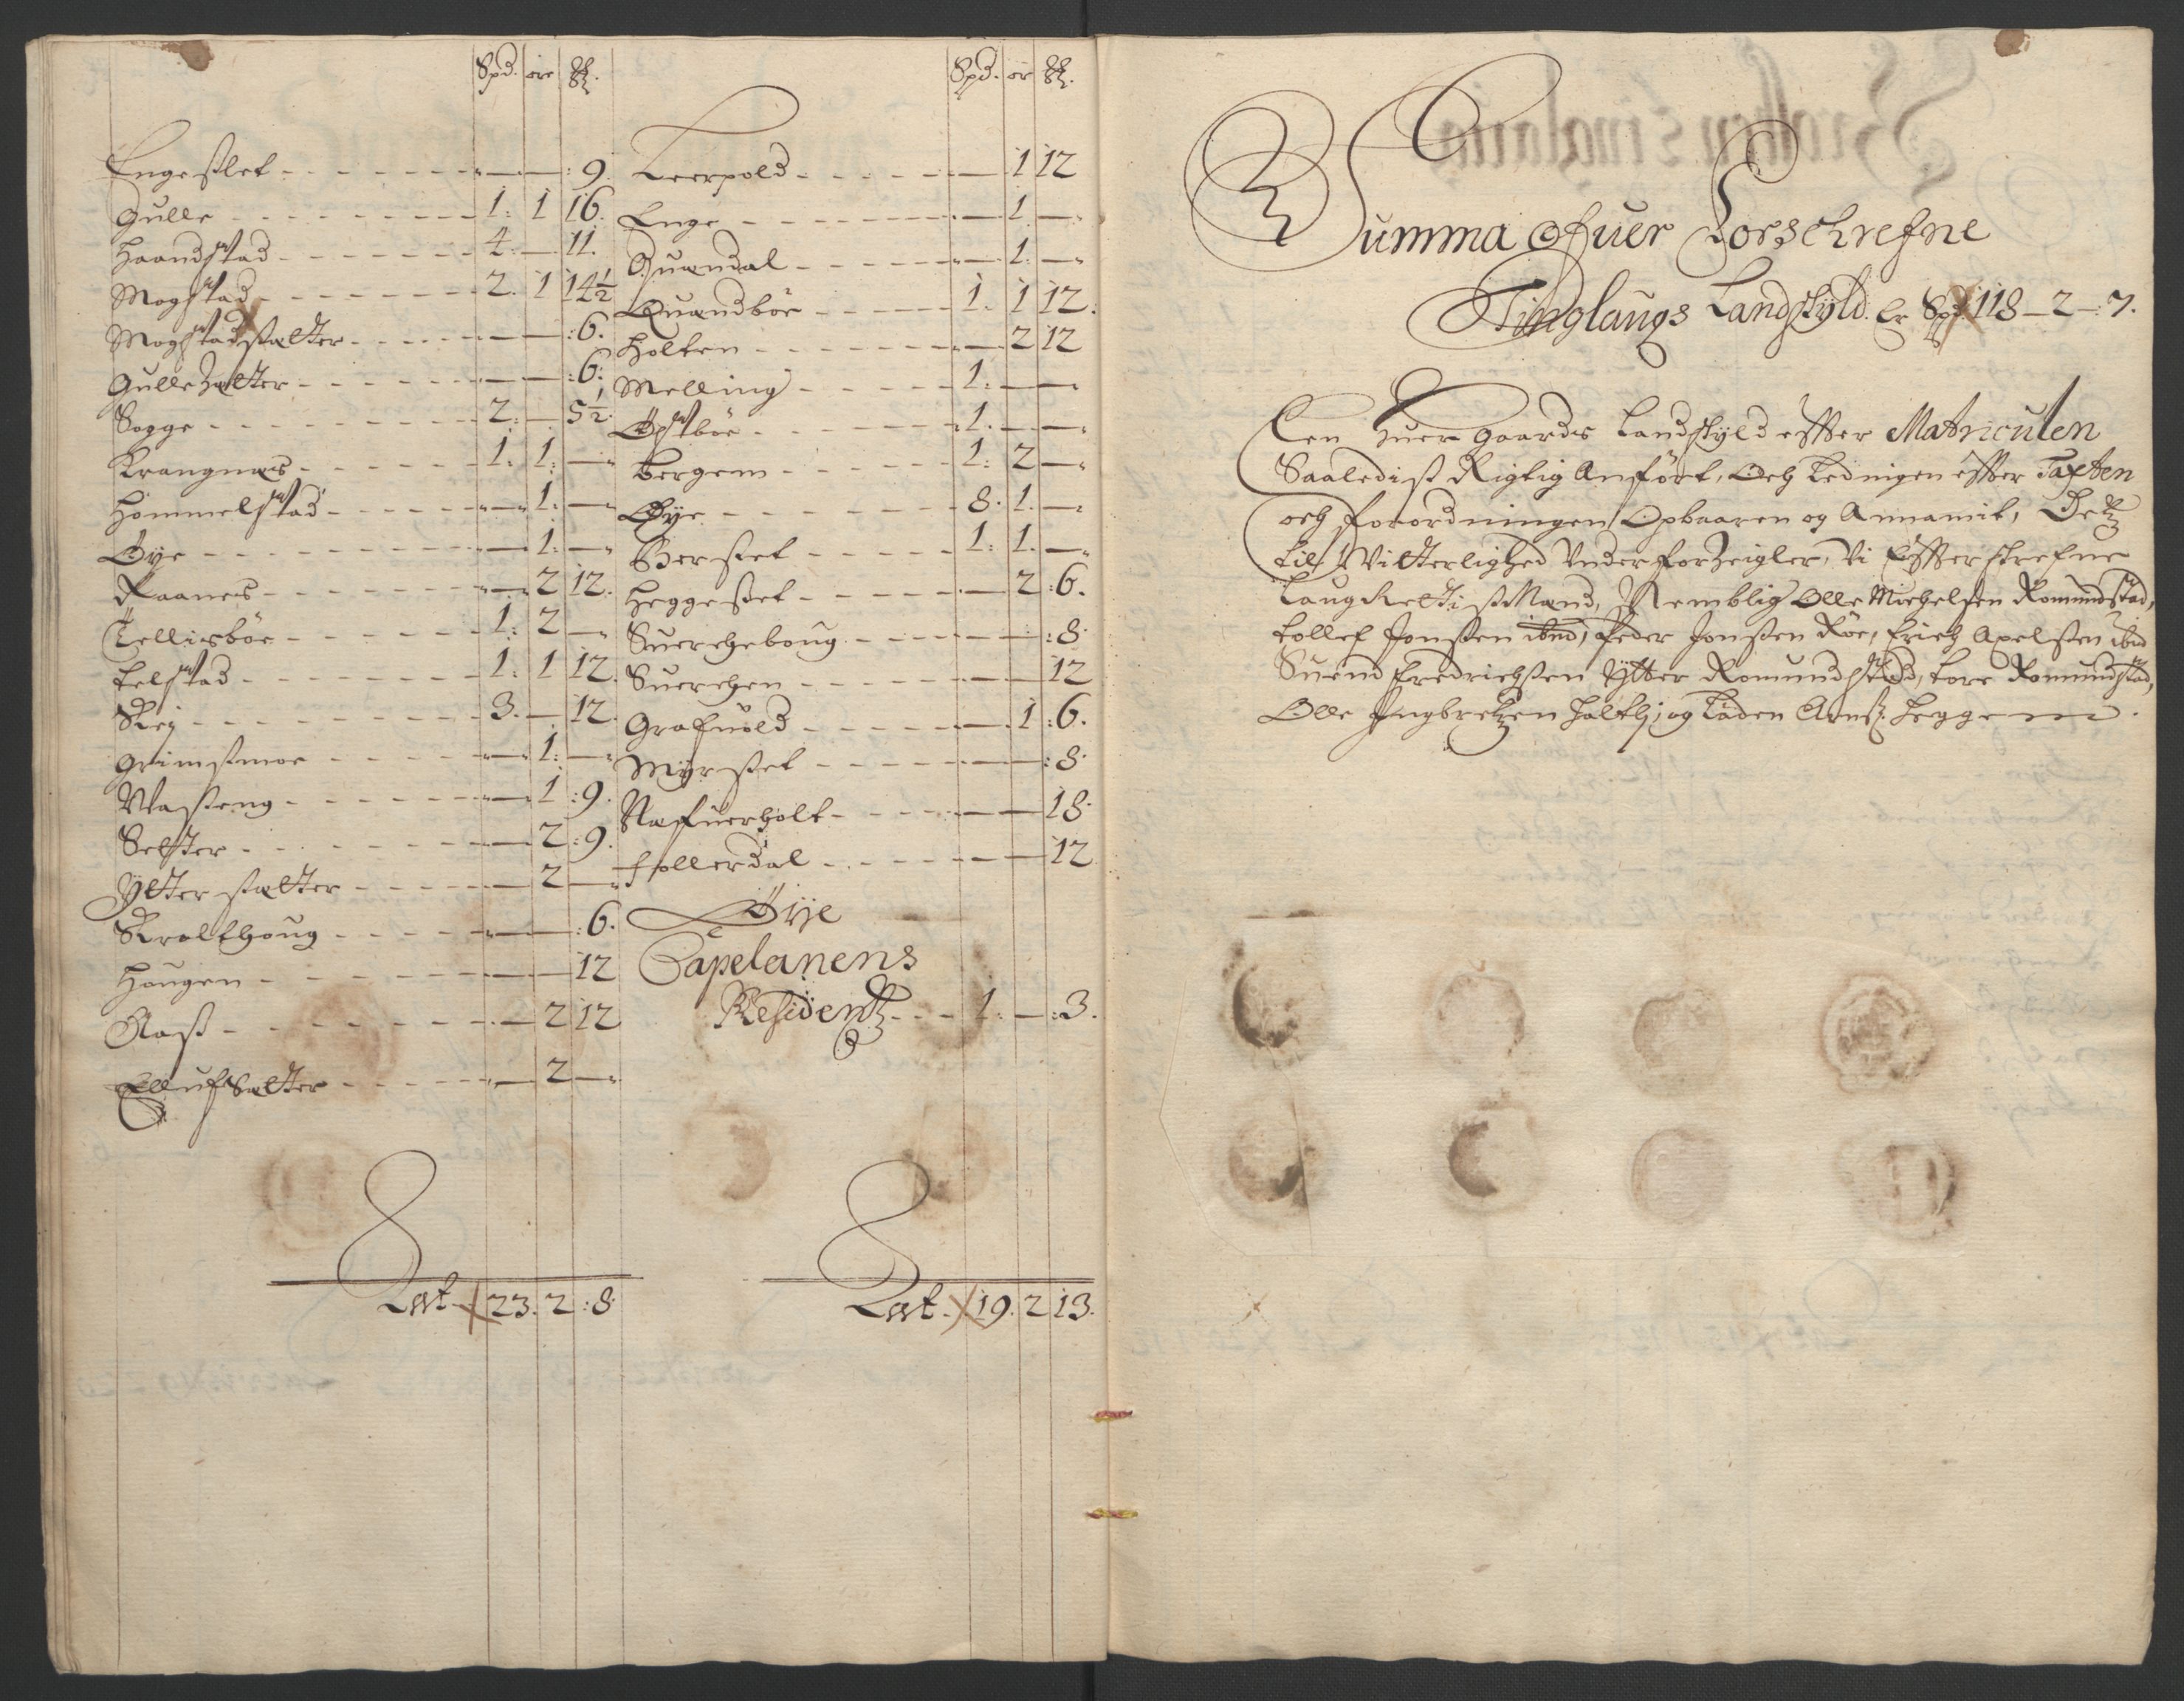 Spd. øre ℔.
Engeslet - - - - - :9.
Gulle - - - 1: 1 16.
Haandstad - - - 4: — 11.
Mogstad - - - 2. 1 14½
Mogstadsæltter - - - — — :6.
Gulle Sæltter - - - — — :6:
Sogge - - - 2: — 5½.
Krangnæs - - - 1: 1: —
Hommelstad - - - — 1: —
Øye - - - — 1: —
Raanes - - - — 2 12.
Tellisbøe - - - 1: 2 —
Telstad - - - 1: 1 12.
Riej - - - 3. — 12.
Grimsmoe - - - — 1: —
Waseng - - - — 1 :9.
Seltter - - - — 2 :9.
Ytter sæltter - - - — 2 —
Kralthoug - - - — — :6.
Hougen - - - — — 12
Aass - - - — 2 12
Ellufsæltter - - - — 2 —
Lat. 23. 2 :8
Spd. ør ℔.
Leerpold - - - — 1 12
Enge - - - — 1 —
Quændal - - - — 1: —
Quandbøe - - - 1. 1 12.
Holten - - - — 2 12
Melling - - - 1: — —
Øpstbøe - - - 1. — —
Bergem - - - 1: 2 —
Øye - - - 8. 1. —
Berset - - - 1: 1. —
Heggeset - - - — 2 :6.
Suercheboug - - - — — :8
Suerchen - - - — — 12
Grafuold - - - — 1 :6.
Myrset - - - — — :8.
Næfuerholt - - - — — 18.
Follerdal - - - — — 12
Øye
Capelanens
Residentz - - - 1. — :3.
Lat. 19. 2 13.
Summa Ofuer Forschrefne
Tinglaugs Landskyld Er Spd 118 — 2 — 7.
En huer Gaards Landskyld effter Matriculen
Saaledis Rigtig Anført, Och Ledingen effter Taxten
och forordningen Opbaaren og Annamit, Detz
til Vitterlighed Underforzeigler, Vi Effterskrefne
Laug Rettis Mænd, Nemblig Olle Michelsen Romundstad,
Tollef Jonsen ibid, Peder Jonsen Røe, Erich Apelsen ibid
Suend Fredrichsen Ytter Romundstad, Tore Romundstad,
Olle Ingbretzen Halthj, og Laden Arnss. Heggem.